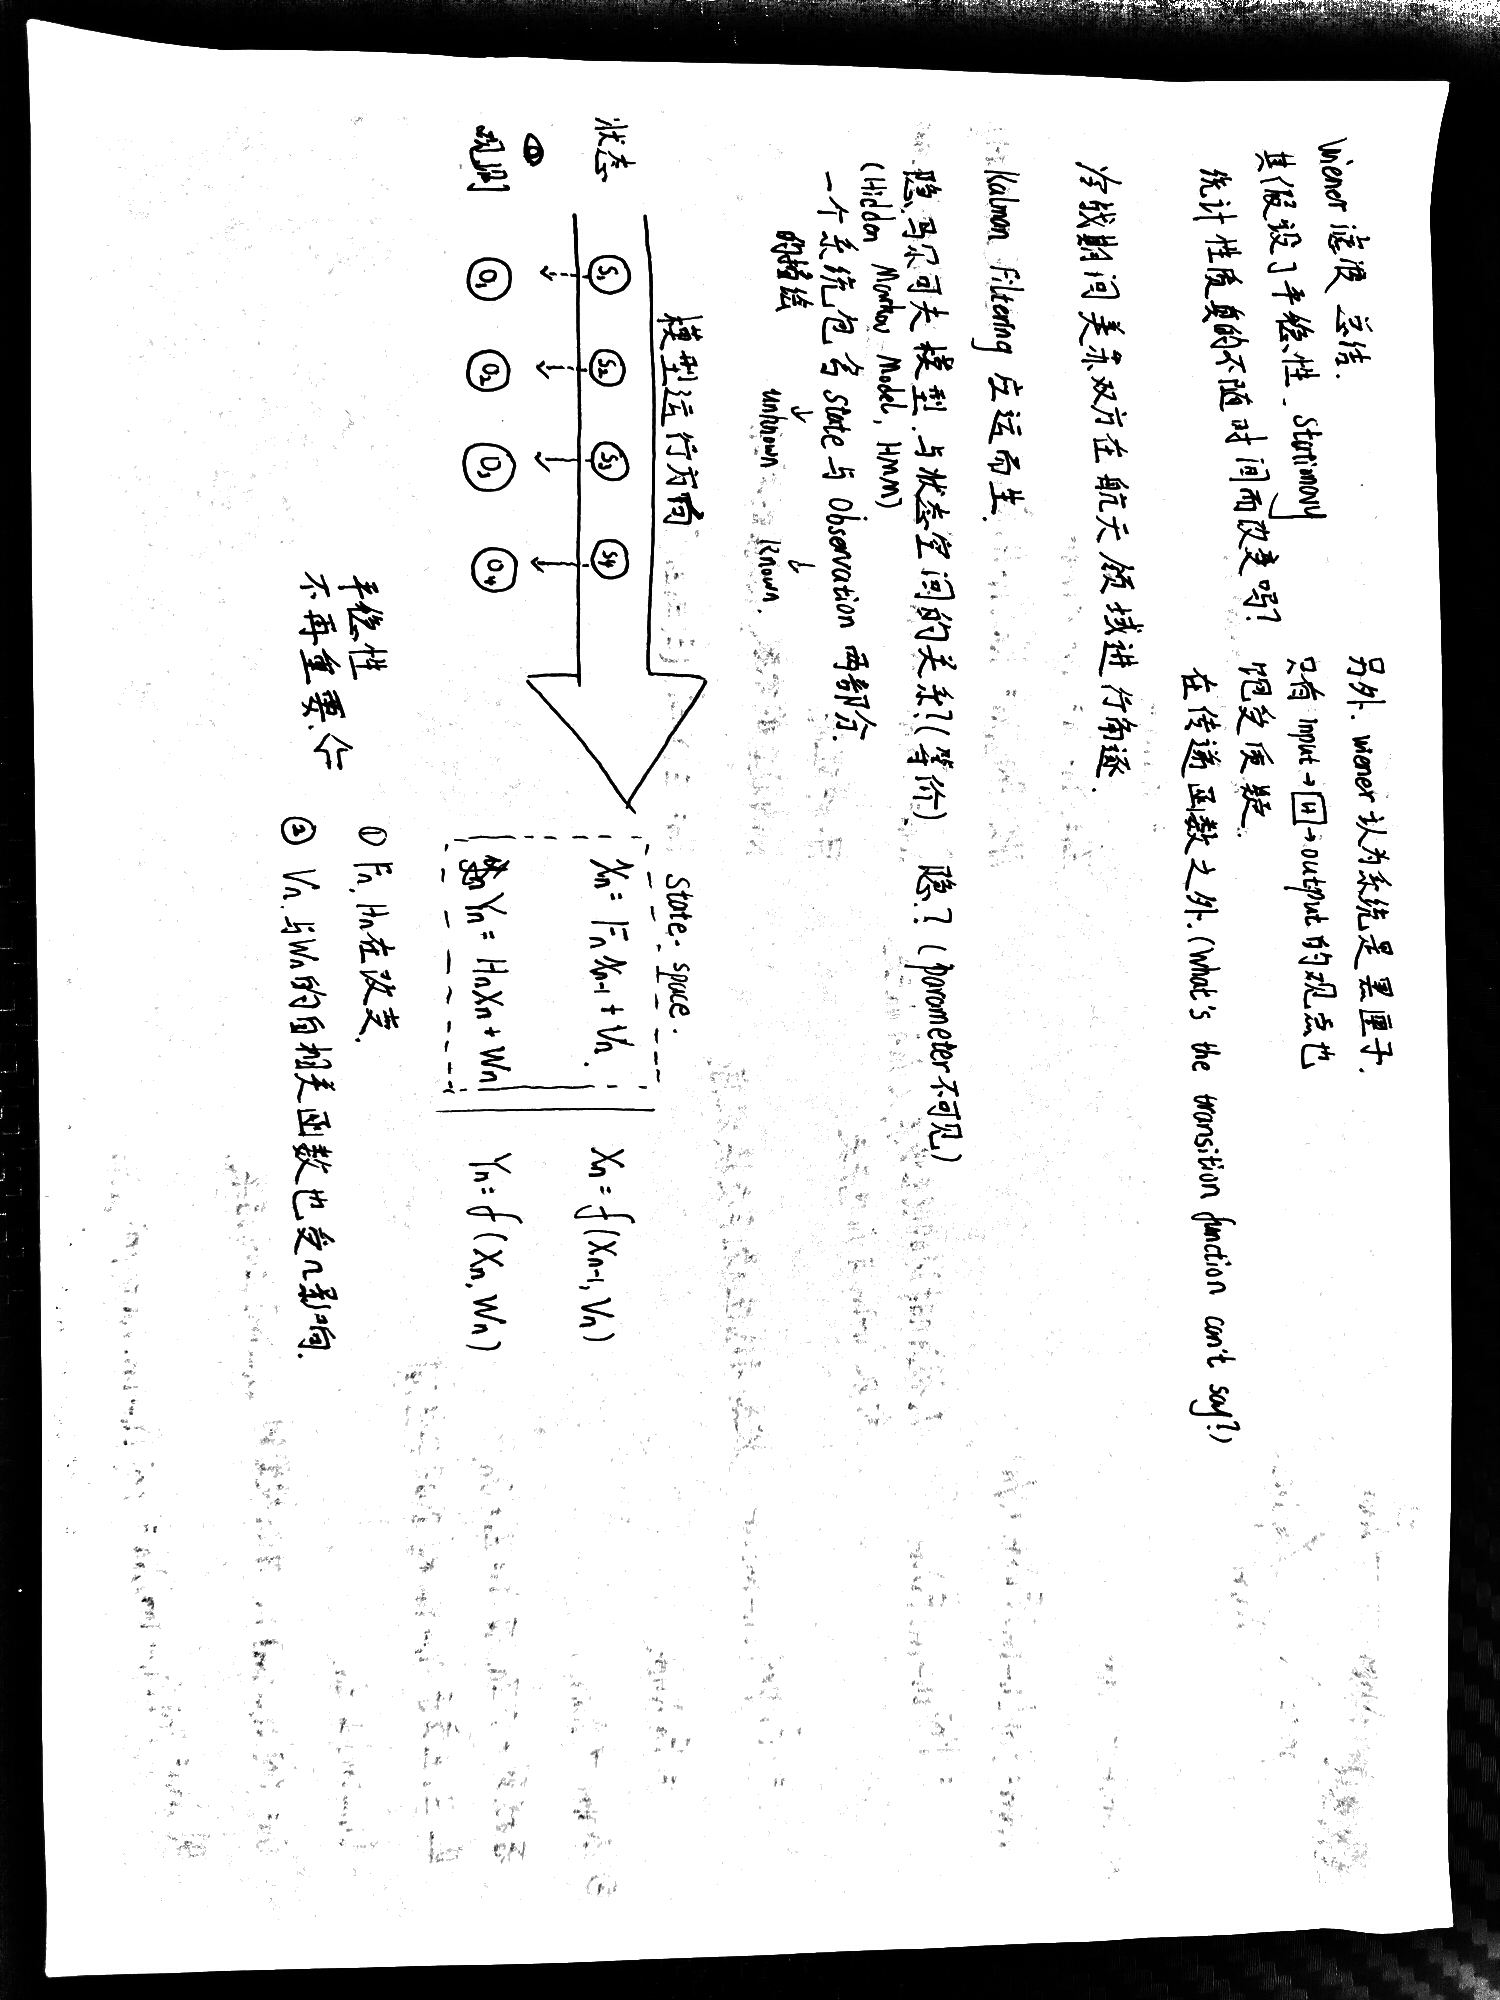 Wiener 滤波 总结.
其假设了平稳性. Stationary
统计性质真的不随时间而改变吗?
另外. wiener 认为系统是黑匣子.
只有 input → H → output 的观点也
饱受质疑.
在传递函数之外. (What's the transition function can't say?)
冷战期间美苏双方在航天领域进行角逐.
Kalman Filtering 应运而生.
隐马尔可夫模型与状态空间的关系?(等价) 隐? (parameter不可见)
(Hidden Markov Model, HMM)
一个系统包含 state 与 Observation 两部分.
的描绘
↓ ↓
unknown known.
模型运行方向
状态 S1 S2 S3 S4
观测 O1 O2 O3 O4
state-space.
Xn = Fn Xn-1 + Vn.
Yn = HnXn + Wn
Xn = f(Xn-1, Vn)
Yn = f(Xn, Wn)
平稳性
不再重要. ⇐
① Fn, Hn在改变.
② Vn 与Wn的自相关函数也受n影响.